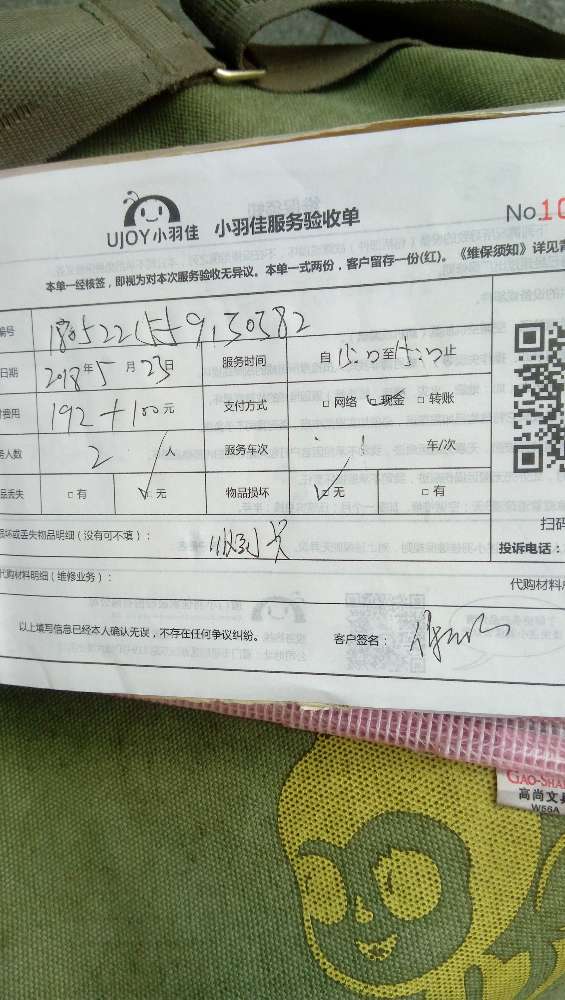 UJOY小羽佳 小羽佳服务验收单
No.10
本单一经核签,即视为对本次服务验收无异议。本单一式两份,客户留存一份(红)。《维保须知》详见背
编号
日期 2018年5月23日 服务时间 自15:00至15:00止
费用 192+100元 支付方式 □网络 □现金 □转账
务人数 2人 服务车次 车/次
品丢失 □有 □无 物品损坏 □无 □有
损坏或丢失物品明细(没有可不填):
扫码
投诉电话:
代购材料明细(维修业务):
代购材料
以上填写信息已经本人确认无误,不存在任何争议纠纷。 客户签名:
GAO-SHA
高尚文具
W56A